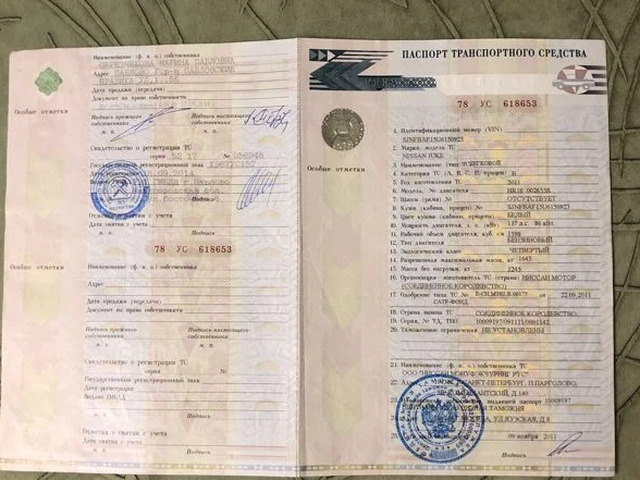 Наименование (ф. и. о.) собственника
МАРИНА ПАВЛОВНА
Адрес ПАВЛОВО ПАВЛОВСКИЙ
Дата продажи (передачи)
Документ на право собственности
Особые отметки
Подпись прежнего собственника
Подпись настоящего собственника
м. п.
м. п.
Свидетельство о регистрации ТС
серия 52 17 №
Государственный регистрационный знак
Дата регистрации .09.2014
Выдано
м. п.
Подпись
Отметка о снятии с учета
Дата снятия с учета
78 УС 618653
Наименование (ф. и. о.) собственника
Особые отметки
Адрес
Дата продажи (передачи)
Документ на право собственности
Подпись прежнего собственника
Подпись настоящего собственника
м. п.
м. п.
Свидетельство о регистрации ТС
серия №
Государственный регистрационный знак
Дата регистрации
Выдано ГИБДД
м. п.
Подпись
Отметка о снятии с учета
Дата снятия с учета
м. п.
Подпись
ПАСПОРТ ТРАНСПОРТНОГО СРЕДСТВА
78 УС 618653
1. Идентификационный номер (VIN)
SJNFBAF15U6150923
2. Марка, модель ТС
NISSAN JUKE
Особые отметки
3. Наименование (тип ТС) ЛЕГКОВОЙ
4. Категория ТС (A, B, C, D, прицеп) B
5. Год изготовления ТС 2011
6. Модель, № двигателя HR16
7. Шасси (рама) № ОТСУТСТВУЕТ
8. Кузов (кабина, прицеп) № SJNFBAF15U6150923
9. Цвет кузова (кабины, прицепа) БЕЛЫЙ
10. Мощность двигателя, л. с. (кВт) 117 л.с. 86 кВт.
11. Рабочий объем двигателя, куб. см 1598
12. Тип двигателя БЕНЗИНОВЫЙ
13. Экологический класс ЧЕТВЕРТЫЙ
14. Разрешенная максимальная масса, кг 1645
15. Масса без нагрузки, кг 1245
16. Организация - изготовитель ТС (страна) НИССАН МОТОР
(СОЕДИНЕННОЕ КОРОЛЕВСТВО)
17. Одобрение типа ТС № от 22.09.2011
САТР-ФОНД
18. Страна вывоза ТС СОЕДИНЕННОЕ КОРОЛЕВСТВО
19. Серия, № ТД, ТПО
20. Таможенные ограничения НЕ УСТАНОВЛЕНЫ
21. Наименование (ф. и. о.) собственника ТС
ООО "НИССАН МЭНУФЭКЧУРИНГ РУС"
22. Адрес САНКТ-ПЕТЕРБУРГ, П.ПАРГОЛОВО,
Д.140
выдавшей паспорт
ТАМОЖНЯ
09 ноября 2011
м. п.
Подпись